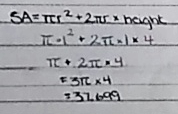 SA = πr² + 2πr × height
π · 1² + 2π · 1 × 4
π + 2π × 4
= 3π × 4
= 37.699